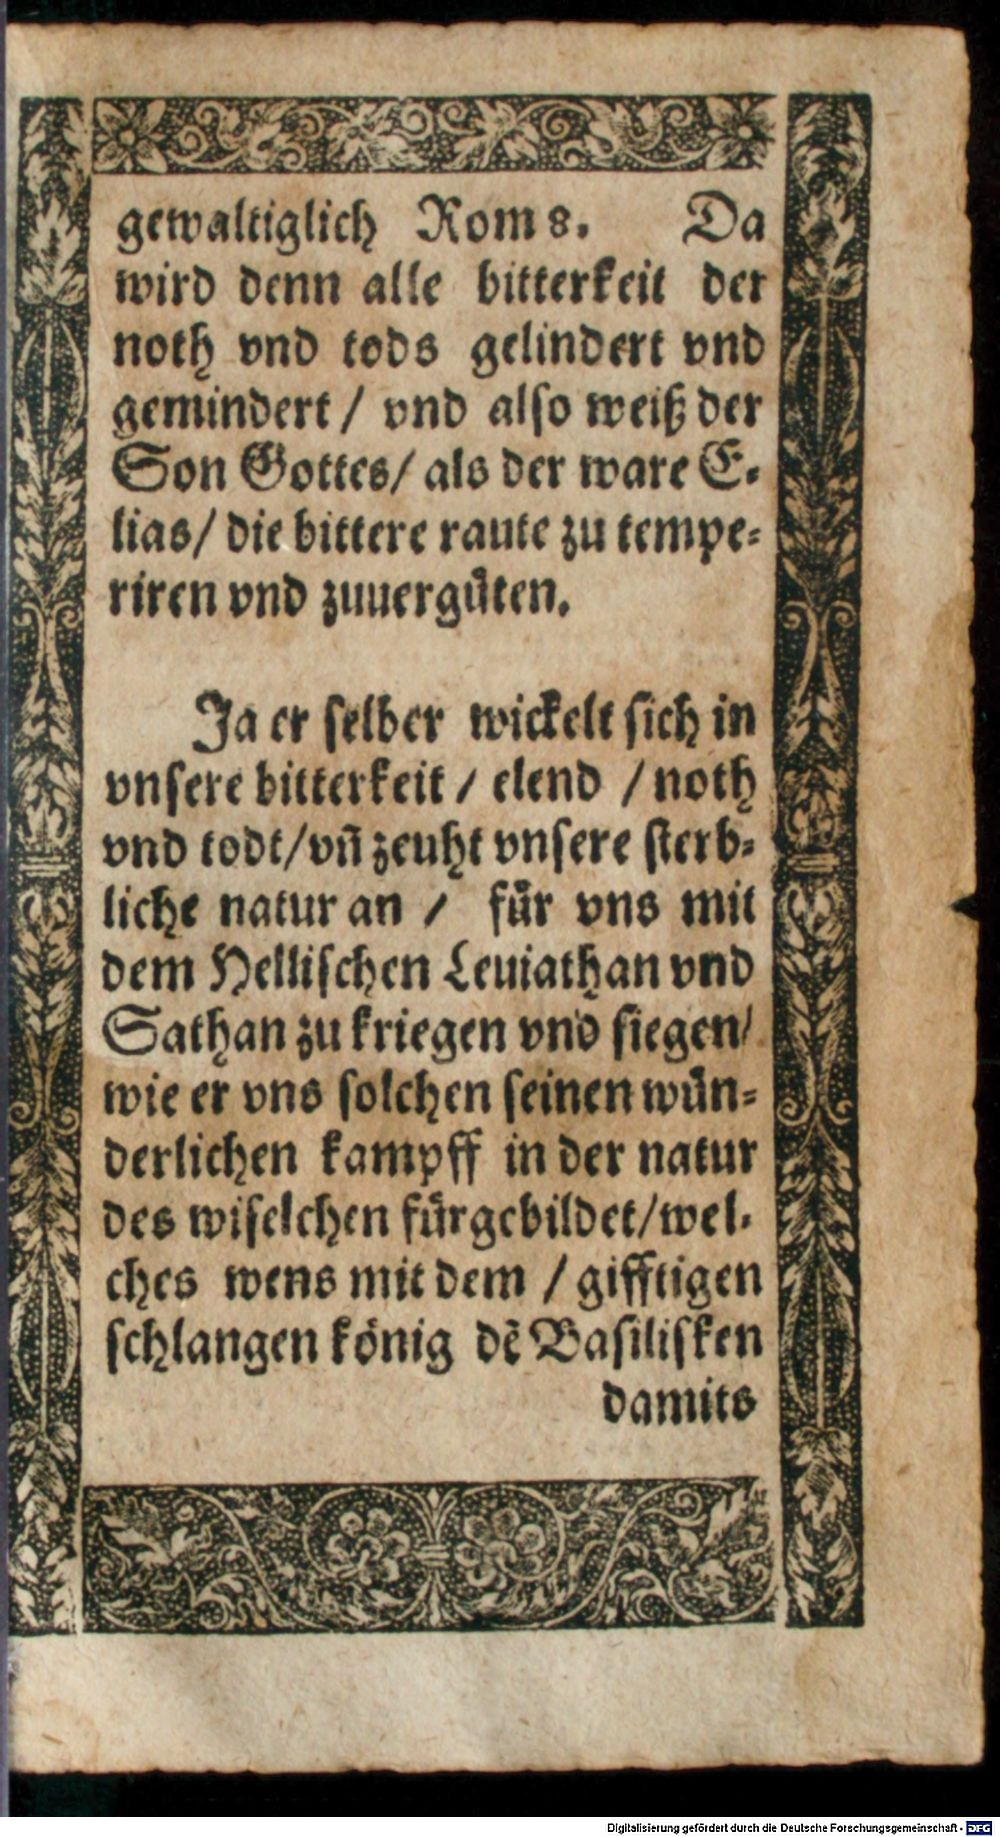 gewaltiglich Rom 8. Da
wird denn alle bitterkeit der
noth vnd tods gelindert vnd
gemindert / vnd also weiß der
Son Gottes / als der ware E-
lias / die bittere raute zu tempe-
riren vnd zuuergüten.
Ja er selber wickelt sich in
vnsere bitterkeit / elend / noth
vnd todt / vñ zeuht vnsere sterb-
liche natur an / für vns mit
dem Hellischen Leuiathan vnd
Sathan zu kriegen vnd siegen /
wie er vns solchen seinen wün-
derlichen kampff in der natur
des wiselchen fürgebildet / wel-
ches wens mit dem / gifftigen
schlangen könig dẽ Basilisken
damits
Digitalisierung gefördert durch die Deutsche Forschungsgemeinschaft - DFG